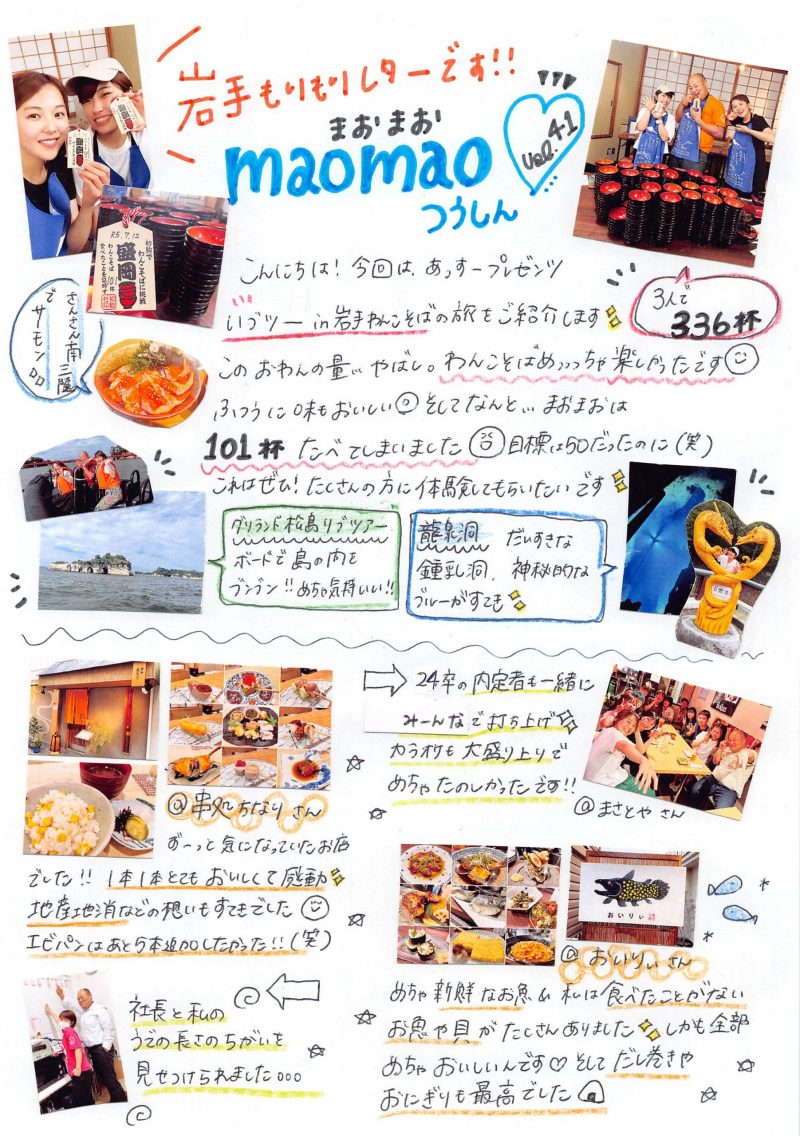 岩手もりもりレターです!!
まおまお
maomao
つうしん
Vol.41
R5.7.12
初陣で
わんこそばに挑戦
盛岡
わんこそば101杯
食べたことを証明す
こんにちは!今回は、あっすープレゼンツ
いづツー in 岩手わんこそばの旅をご紹介します
3人で
336杯
このおわんの量… やばし。わんこそばめっっっちゃ楽しかったです
ふつうに味もおいしい そしてなんと… まおまおは
101杯 たべてしまいました 目標は50だったのに(笑)
これはぜひ!たくさんの方に体験してもらいたいです
さんさん南三陸
でサーモン
グリランド松島リブツアー
ボードで島の内を
ブンブン!!めちゃ気持いい!!
龍泉洞 だいすきな
鍾乳洞、神秘的な
ブルーがすてき
@串処ちなりさん
ずーっと気になっていたお店
でした!! 1本1本とてもおいしくて感動
地産地消などの想いもすてきでした
エビパンはあと5本追加したかった!!(笑)
24卒の内定者も一緒に
みーんなで打ち上げ
カラオケも大盛り上りで
めちゃたのしかったです!!
@まさとやさん
おいりぃ
@おいりぃさん
めちゃ新鮮なお魚 私は食べたことがない
お魚や貝がたくさんありました しかも全部
めちゃおいしいんです♡ そしてだし巻きや
おにぎりも最高でした
社長と私の
うでの長さのちがいを
見せつけられました。。。